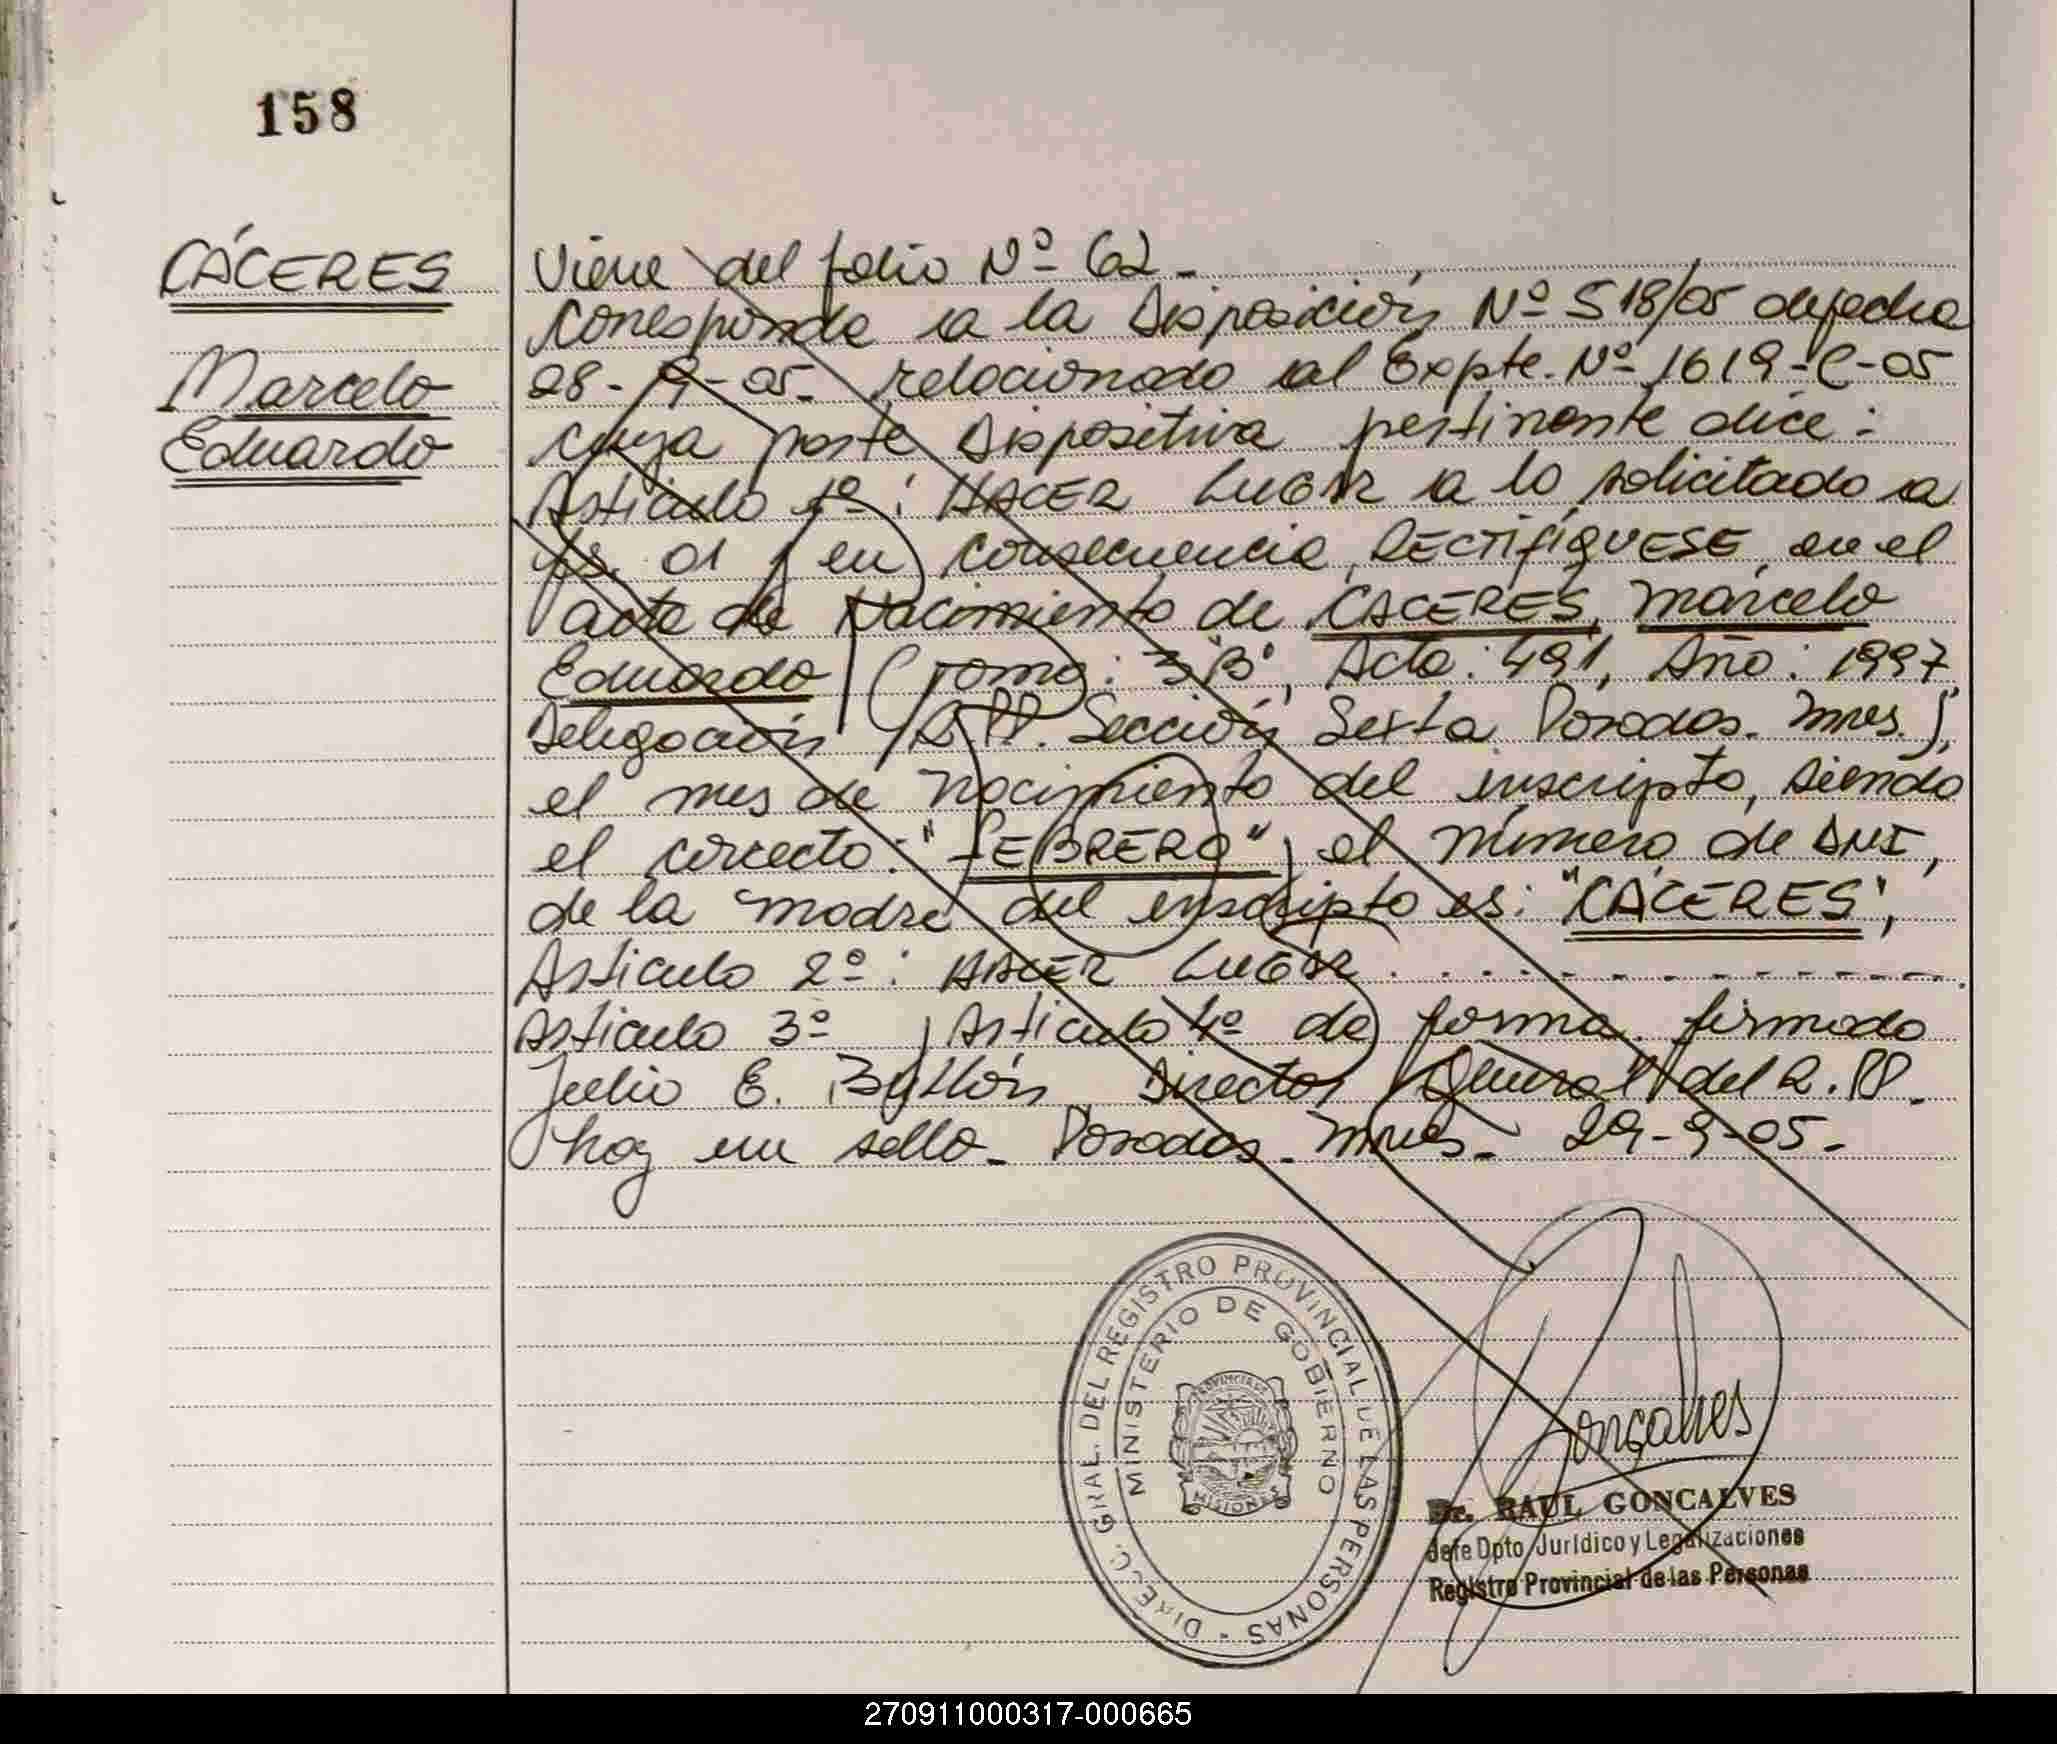 158
CÁCERES
Marcelo
Eduardo
Viene del folio Nº 62 -
Corresponde a la Disposición Nº 518/05 de fecha
28-9-05- relacionado al Expte. Nº 1619-C-05
cuya parte Dispositiva pertinente dice:
Artículo 1º: HACER LUGAR a lo solicitado a
fs. 01 y en consecuencia, RECTIFÍQUESE, en el
acta de Nacimiento de CACERES, Marcelo
Eduardo (Tomo: 3"B", Acta: 491, Año: 1997,
Delegación R.PP. Sección Sexta Posadas. Mnes.),
el mes de nacimiento del inscripto, siendo
el correcto: "FEBRERO", el número de DNI,
de la madre del inscripto es: "CÁCERES",
Artículo 2º: HACER LUGAR . . . . - - - - - - - - - -
Artículo 3º y Artículo 4º de forma. firmado
Julio E. Director General del R.PP.
hay un sello- Posadas- Mnes- 29-9-05-
DIRECC. GRAL. DEL REGISTRO PROVINCIAL DE LAS PERSONAS
MINISTERIO DE GOBIERNO
PROVINCIA DE
MISIONES
Gonçalves
Dr. RAUL GONCALVES
Jefe Dpto Jurídico y Legalizaciones
Registro Provincial de las Personas
270911000317-000665